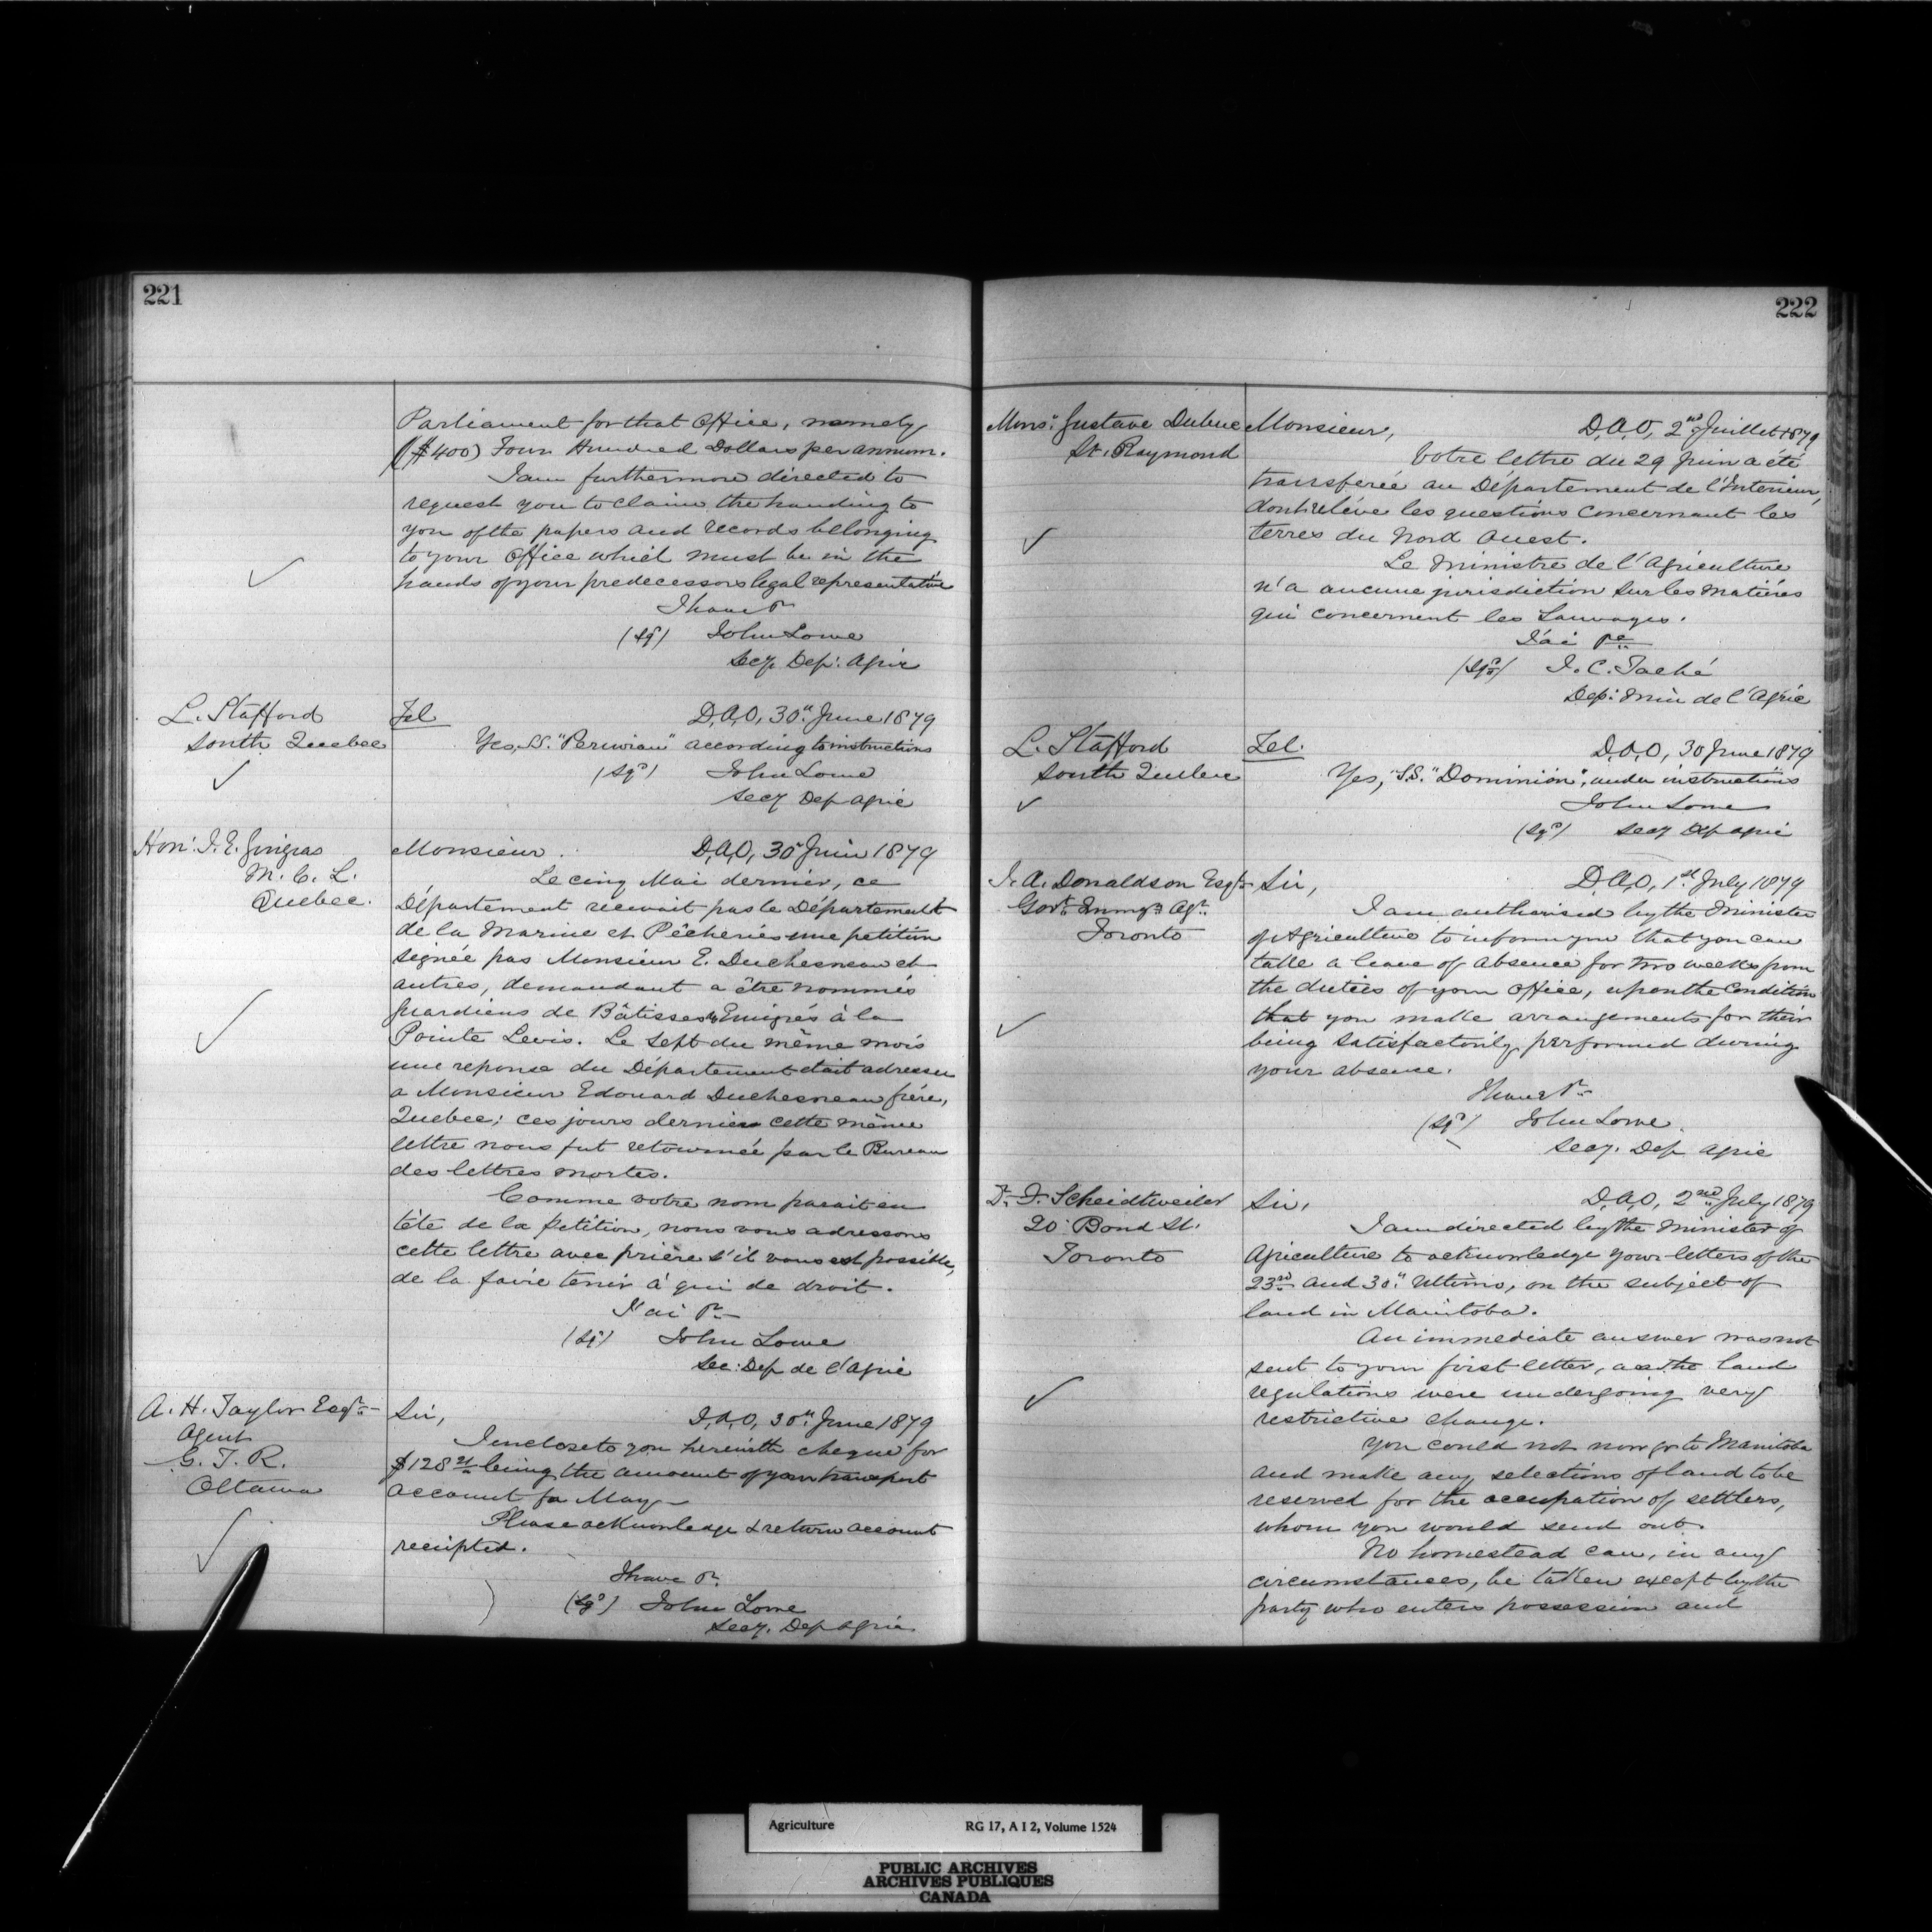 221
Parliament for that Office, namely
($400) Four Hundred Dollars per annum.
I am furthermore directed to
request you to claim the handing to
you of the papers and records belonging
to your Office which must be in the
hands of your predecessors legal representative
I have &c
(sgd) John Lowe
Secy. Dep: Agric
L. Stafford
South Quebec
Tel
D.A.O, 30" June 1879
Yes, S.S. "Peruvian" according to instructions
(sgd) John Lowe
Secy Dep Agric
Hon: J. E. Gingras
M. C. L.
Quebec.
Monsieur.
D.A.O, 30 Juin 1879
Le cinq Mai dernier, ce
Département recevait pas le Département
de la Marine et Pêcheries une petition
signée pas Monsieur E. Duchesneau et
autres, demandant a être nommés
guardiens de Bâtisses Emigrés à la
Pointe Levis. Le sept du même mois
une reponse du Département était adressée
a Monsieur Edouard Duchesneau frére,
Quebec; ces jours derniers cette même
lettre nous fut retournée par le Bureau
des lettres mortes.
Comme votre nom parait en
tête de la petition, nous vous adressons
cette lettre avec prière s'il vous est possible,
de la faire tenir à qui de droit.
J'ai &c
(sgd) John Lowe
Sec: Dep de l'Agric
A. H. Taylor Esqre
Agent
G. T. R.
Ottawa
Sir,
D.A.O, 30" June 1879
I enclose to you herewith cheque for
$128 being the amount of your transport
account for May
Please acknowledge & return account
receipted.
I have &c.
(sgd) John Lowe
Secy. Dep Agric
222
Monsr: Gustave Dubuc
St. Raymond
Monsieur,
D.A.O, 2nd Juillet 1879
Votre lettre du 29 Juin a été
transferée au Département de l'Interieur,
dont reléve les questions concernant les
terres du Nord Ouest.
Le Ministre de l'Agriculture
n'a aucune jurisdiction sur les matiéres
qui concernent les Sauvages.
J'ai &c
(sgd) J. C. Taché
Dep: Min de l'Agric
L. Stafford
South Quebec
Tel.
D.A.O, 30 June 1879
Yes, "S.S." Dominion", under instructions
John Lowe
(sgd) Secy Dep Agric
J. A. Donaldson Esqre
Govt: Immgn Agt.
Toronto
Sir,
D.A.O, 1st July 1879
I am authorised by the Minister
of Agriculture to inform you that you can
take a leave of absence for two weeks from
the duties of your Office, upon the condition
that you make arrangements for their
being satisfactorily performed during
your absence.
I have &c
(sgd) John Lowe.
Secy. Dep Agric
Scheidtweiler
20 Bond St.
Toronto
Sir,
D.A.O, 2nd July 1879
I am directed by the Minister of
Agriculture to acknowledge your letters of the
23rd and 30" Ultimo, on the subject of
land in Manitoba.
An immediate answer was not
sent to your first letter, as the land
regulations were undergoing very
restrictive change.
You could not now go to Manitoba
and make any selections of land to be
reserved for the occupation of settlers,
whom you would send out.
No homestead can, in any
circumstances, be taken except by the
party who enters possession and
Agriculture RG 17, A I 2, Volume 1524
PUBLIC ARCHIVES
ARCHIVES PUBLIQUES
CANADA